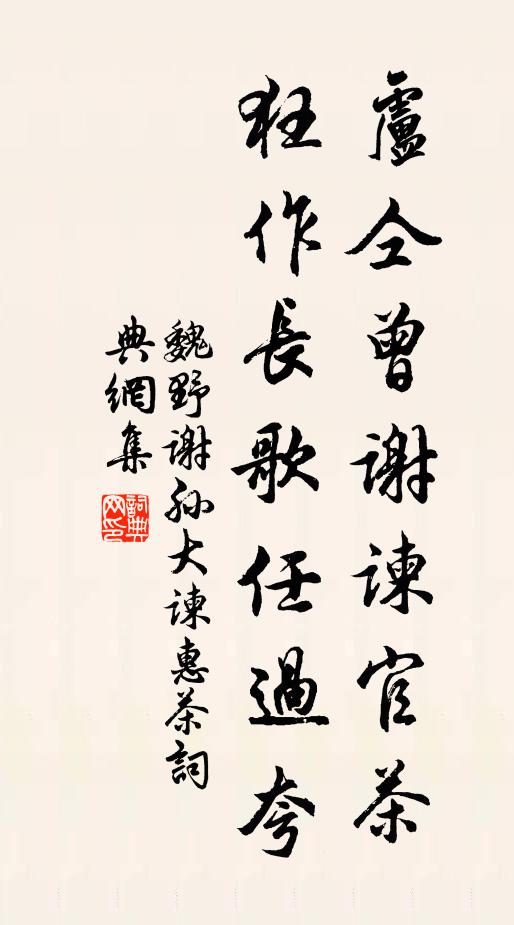 盧仝曾謝諫官茶
狂作長歌任過夸
魏野謝孙大諫惠茶詞
典網集
詞典
网印